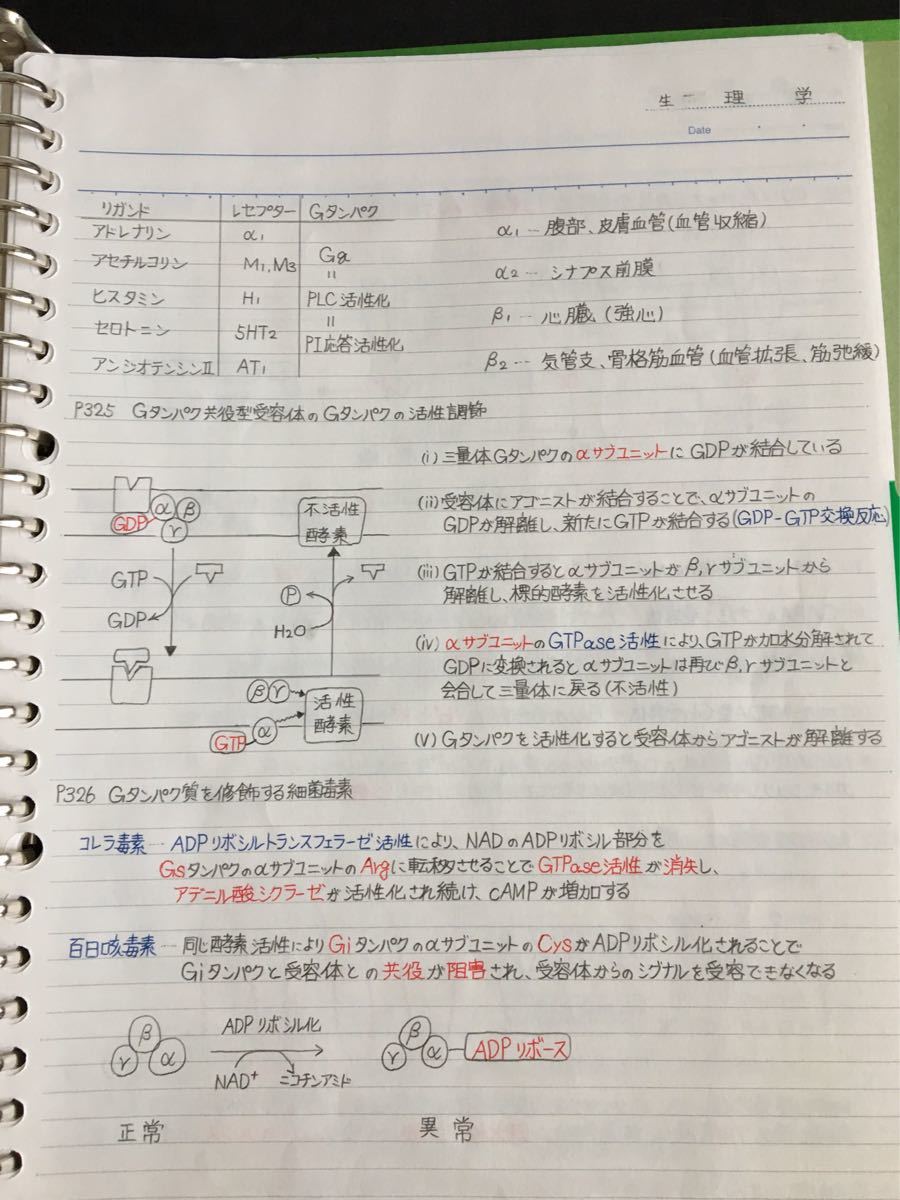 生理学
Date
リガンド レセプター Gタンパク
アドレナリン α1
アセチルコリン M1, M3 Gq
＝
ヒスタミン H1 PLC活性化
＝
セロトニン 5HT2 PI応答活性化
アンジオテンシンⅡ AT1
α1…腹部、皮膚血管(血管収縮)
α2…シナプス前膜
β1…心臓(強心)
β2…気管支、骨格筋血管(血管拡張、筋弛緩)
P325 Gタンパク共役型受容体のGタンパクの活性調節
α β γ
GDP
GTP
GDP
不活性
酵素
P
H2O
β γ
GTP α
活性
酵素
(i) 三量体Gタンパクのαサブユニットに GDPが結合している
(ii) 受容体にアゴニストが結合することで、αサブユニットの
GDPが解離し、新たにGTPが結合する(GDP-GTP交換反応)
(iii) GTPが結合するとαサブユニットがβ,γサブユニットから
解離し、標的酵素を活性化させる
(iv) αサブユニットのGTPase活性により、GTPが加水分解されて
GDPに変換されるとαサブユニットは再びβ,γサブユニットと
会合して三量体に戻る(不活性)
(V) Gタンパクを活性化すると受容体からアゴニストが解離する
P326 Gタンパク質を修飾する細菌毒素
コレラ毒素…ADPリボシルトランスフェラーゼ活性により、NADのADPリボシル部分を
Gsタンパクのαサブユニットの Argに転移させることで GTPase活性が消失し、
アデニル酸シクラーゼが活性化され続け、cAMPが増加する
百日咳毒素…同じ酵素活性により Giタンパクのαサブユニットの CysがADPリボシル化されることで
Giタンパクと受容体との共役が阻害され、受容体からのシグナルを受容できなくなる
β γ α
ADPリボシル化
NAD+ ニコチンアミド
β γ α ADPリボース
正常 異常